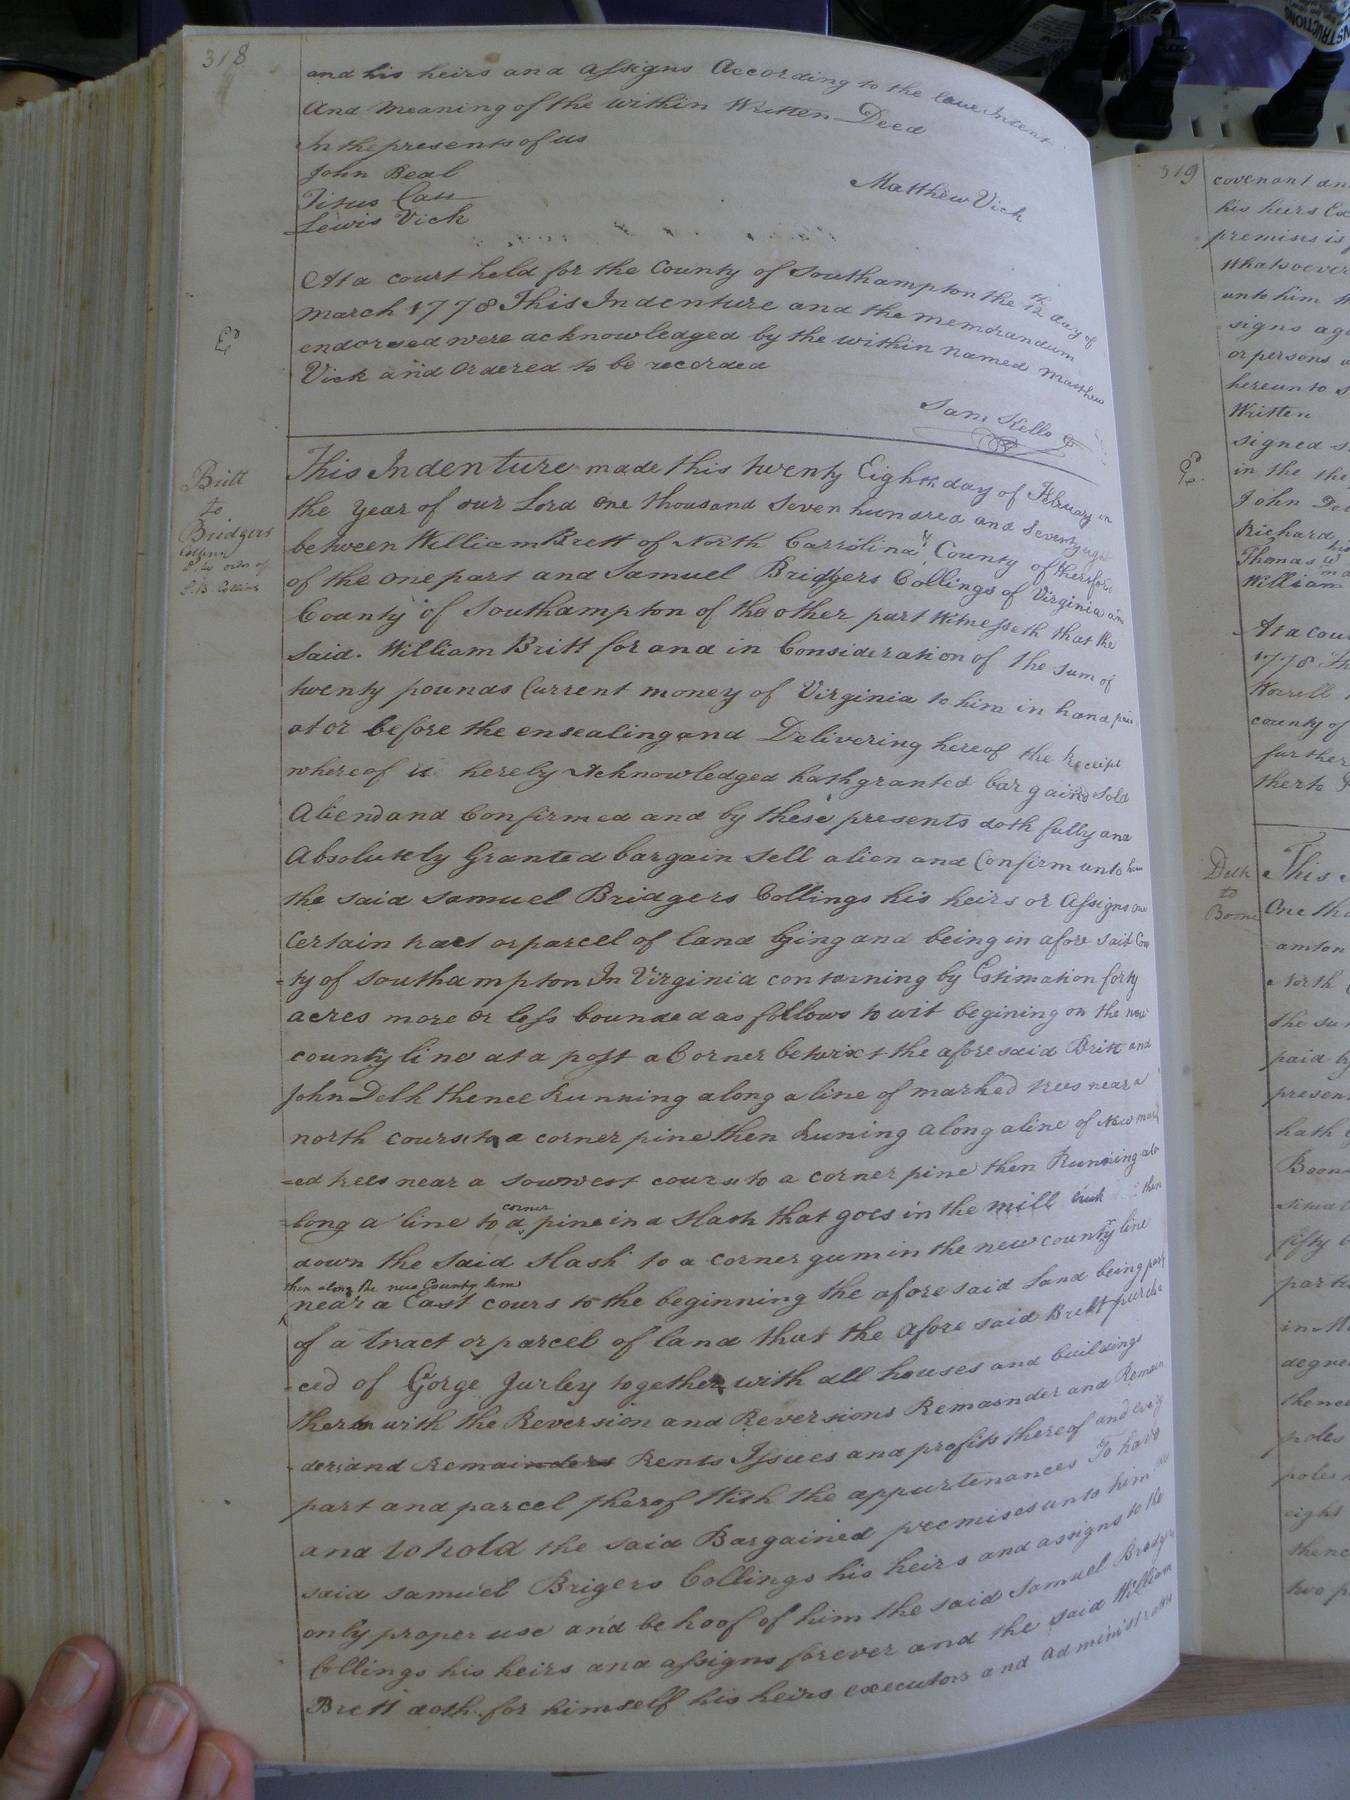 318
and his heirs and assigns According to the true Intent
And Meaning of the within Written Deed
In the presents of us
John Beal
Matthew Vick
Titus Carr
Lewis Vick
At a court held for the County of Southampton the 12th day of
March 1778 This Indenture and the memorandum
endorsed were acknowledged by the within named Matthew
Vick and Ordered to be recorded
Ed
Sam Kello
Britt
to
Bridgers
This Indenture made this twenty Eighth day of February in
the Year of our Lord One thousand Seven hundred and Seventy eight
between William Brett of North Carrolina County of
of the one part and Samuel Bridgers Collings of Virginia
County of Southampton of the other part Witnesseth that the
Said William Britt for and in Consideration of the sum of
twenty pounds Current money of Virginia to him in hand
at or before the ensealing and Delivering hereof the Receipt
whereof is hereby Acknowledged hath granted bargaind Sold
Aliend and Confirmed and by these presents doth fully and
Absolutely Granted bargain Sell alien and Confirm unto him
the said Samuel Bridgers Collings his heirs or Assigns one
Certain tract or parcel of land Lying and being in afore said Coun
-ty of Southampton In Virginia containing by Estimation forty
acres more or less bounded as follows to wit begining on the new
county line at a post a Corner betwixt the aforesaid Britt and
John Delk thence Running along a line of marked trees near a
north cours to a corner pine then Runing along a line of New mark
-ed trees near a Souwest cours to a corner pine then Running a
-long a line to a corner pine in a Slash that goes in the mill then
down the Said Slash to a corner gum in the new county line
then along the new County line
near a East cours to the beginning the afore said Land being part
of a tract or parcel of land that the Afore said Brett purcha
-ced of Gorge Jurley together with all houses and buildings
therin with the Reversion and Reversions Remainder and Remain
-ders and Remainders Rents Issues and profits thereof and every
part and parcel therof With the appurtenances To have
and to hold the said Bargained premises unto him
said Samuel Brigers Collings his heirs and assigns to the
only proper use and behoof of him the said Samuel Bridgers
Collings his heirs and assigns forever and the said William
Brett doth for himself his heirs executors and administrators
319
covenant
his heirs
premises is
Whatsoever
unto him
signs
or persons
hereunto
Written
signed
in the
Ed
John
Richard
Thomas
William
At a
1778
county of
further
therto
Delk
to
Boone
This
One
amton
North
the
paid
presen
hath
Boon
fifty
part
in
degre
thence
poles
poles
eight
thence
two